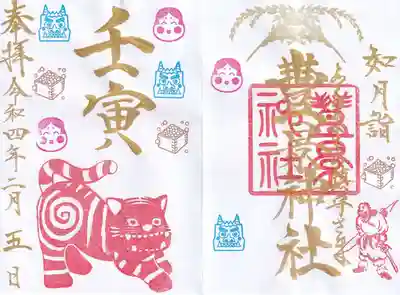 如月詣
豊景神社
豊景神社
壬寅
奉拝 令和四年二月五日